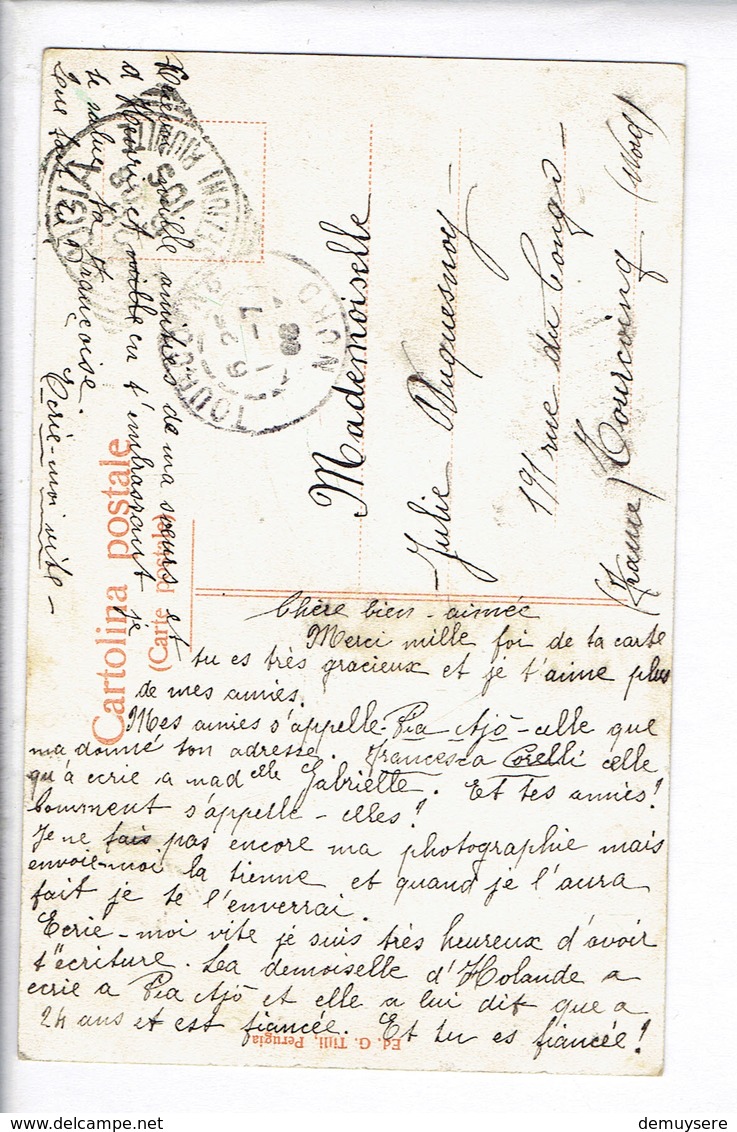 Cartolina postale
(Carte postale)
Mademoiselle
Julie Duquesnoy
191 rue du Congo
Tourcoing (Nord)
(France)
Chère bien-aimée
Merci mille foi de ta carte
tu es très gracieux et je t'aime plus
de mes amies.
Mes amies s'appelle Pia Ajò - celle que
ma donné ton adresse. Francesca Corelli celle
qu'a ecrie a mad.elle Gabrielle. Et tes amies?
Comment s'appelle-elles?
Je ne fais pas encore ma photographie mais
envoie-moi la tienne et quand je l'aura
fait je te l'enverrai.
Ecrie-moi vite je suis très heureux d'avoir
t'écriture. Lea demoiselle d'Holande a
ecrie a Pia Ajò et elle a lui dit que a
24 ans et est fiancée. Et tu es fiancée?
mille amitiés de ma soeurs et
d'Henri et mille en t'embrassant je
te salue ta Françoise.
Ecrie-moi vite -
TOURCOING
NORD
6
1 - 7
08
Ed. G. Tilli, Perugia
demuysere